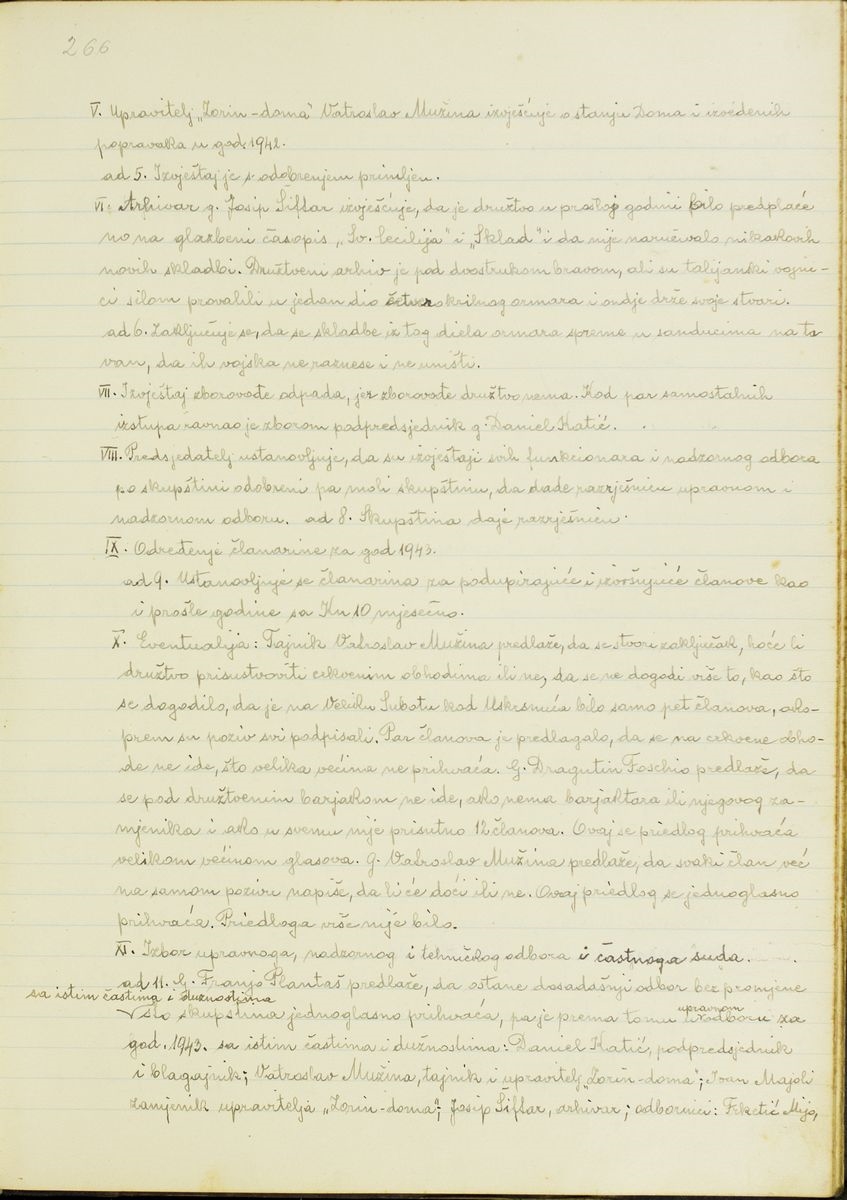 266
V. Upravitelj „Zorin-doma" Vatroslav Mužina izvješćuje o stanju Doma i izvedenih
popravaka u god. 1942.
ad 5. Izvještaj je s odobrenjem primljen.
VI. Arhivar g. Josip Šiftar izvješćuje, da je družtvo u prošloj godini bilo predplaće
no na glazbeni časopis „Sv. Cecilija" i „Sklad" i da nije naručivalo nikakovih
novih skladbi. Družtveni arhiv je pod dvostrukom bravom, ali su talijanski vojni-
ci silom provalili u jedan dio četverokrilnog ormara i ondje drže svoje stvari.
ad 6. Zaključuje se, da se skladbe iz tog diela ormara spreme u sanducima na ta
van, da ih vojska ne raznese i ne uništi.
VII. Izvještaj zborovođe odpada, jer zborovođe družtvo nema. Kod par samostalnih
izstupa ravnao je zborom podpredsjednik g. Daniel Katić.
VIII. Predsjedatelj ustanovljuje, da su izvještaji svih funkcionara i nadzornog odbora
po skupštini odobreni pa moli skupštinu, da dade razrješnicu upravnom i
nadzornom odboru. ad 8. Skupština daje razrješnicu.
IX. Određenje članarine za god 1943.
ad 9. Ustanovljuje se članarina za podupirajuće i izvršujuće članove kao
i prošle godine sa Kn 10 mjesečno.
X. Eventualija: Tajnik Vatroslav Mužina predlaže, da se stvori zaključak, hoće li
družtvo prisustvovati crkvenim obhodima ili ne, da se ne dogodi više to, kao što
se dogodilo, da je na Veliku Subotu kod Uskrsnuća bilo samo pet članova, ako-
prem su poziv svi podpisali. Par članova je predlagalo, da se na crkvene obho-
de ne ide, što velika većina ne prihvaća. G. Dragutin Foschio predlaže, da
se pod družtvenim barjakom ne ide, ako nema barjaktara ili njegovog za-
mjenika i ako u svemu nije prisutno 12 članova. Ovaj se priedlog prihvaća
velikom većinom glasova. G. Vatroslav Mužina predlaže, da svaki član već
na samom pozivu napiše, da li će doći ili ne. Ovaj priedlog se jednoglasno
prihvaća. Priedloga više nije bilo.
XI. Izbor upravnoga, nadzornog i tehničkog odbora i častnoga suda.
ad 11. G. Franjo Plantaš predlaže, da ostane dosadašnji odbor bez promjene
sa istim častima i dužnostima
što skupština jednoglasno prihvaća, pa je prema tomu u upravnom odboru za
god. 1943. sa istim častima i dužnostima: Daniel Katić, podpredsjednik
i blagajnik; Vatroslav Mužina, tajnik i upravitelj „Zorin-doma"; Ivan Majoli
zamjenik upravitelja „Zorin-doma"; Josip Šiftar, arhivar; odbornici: Frketić Mijo,